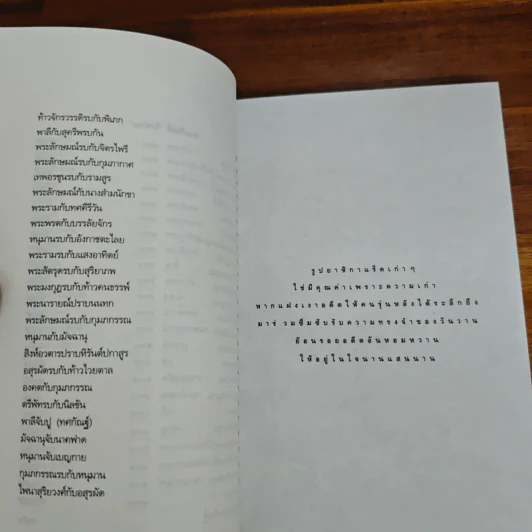 ท้าวจักรวรรดิรบกับพิเภก
พาลีกับสุครีพรบกัน
พระลักษมณ์รบกับจิตรไพรี
พระลักษมณ์รบกับกุมภากาศ
เทพอรชุนรบกับรามสูร
พระลักษมณ์กับนางสำมนักขา
พระรามกับทศคีรีวัน
พระพรตกับบรรลัยจักร
หนุมานรบกับอังกาศตะไลย
พระรามรบกับแสงอาทิตย์
พระสัตรุดรบกับสุริยาภพ
พระมงกุฎรบกับท้าวคนธรรพ์
พระนารายณ์ปราบนนทก
พระลักษมณ์รบกับกุมภกรรณ
หนุมานกับมัจฉานุ
สิงห์อวตารปราบหิรันต์ปกาสูร
อสุรผัดรบกับท้าวไวยตาล
องคตกับกุมภกรรณ
ตรีพัทรบกับนิลขัน
พาลีจับปู (ทศกัณฐ์)
มัจฉานุจับนาคฟาด
หนุมานจับเบญกาย
กุมภกรรณรบกับหนุมาน
ไพนาสุริยวงศ์กับอสุรผัด
รูปยาซิกาแร็ตเก่าๆ
ใช่มีคุณค่าเพราะความเก่า
หากแฝงเงาอดีตให้คนรุ่นหลังได้ระลึกถึง
มาร่วมซึมซับรับความทรงจำของวันวาน
ย้อนรอยอดีตอันหอมหวาน
ให้อยู่ในใจนานแสนนาน